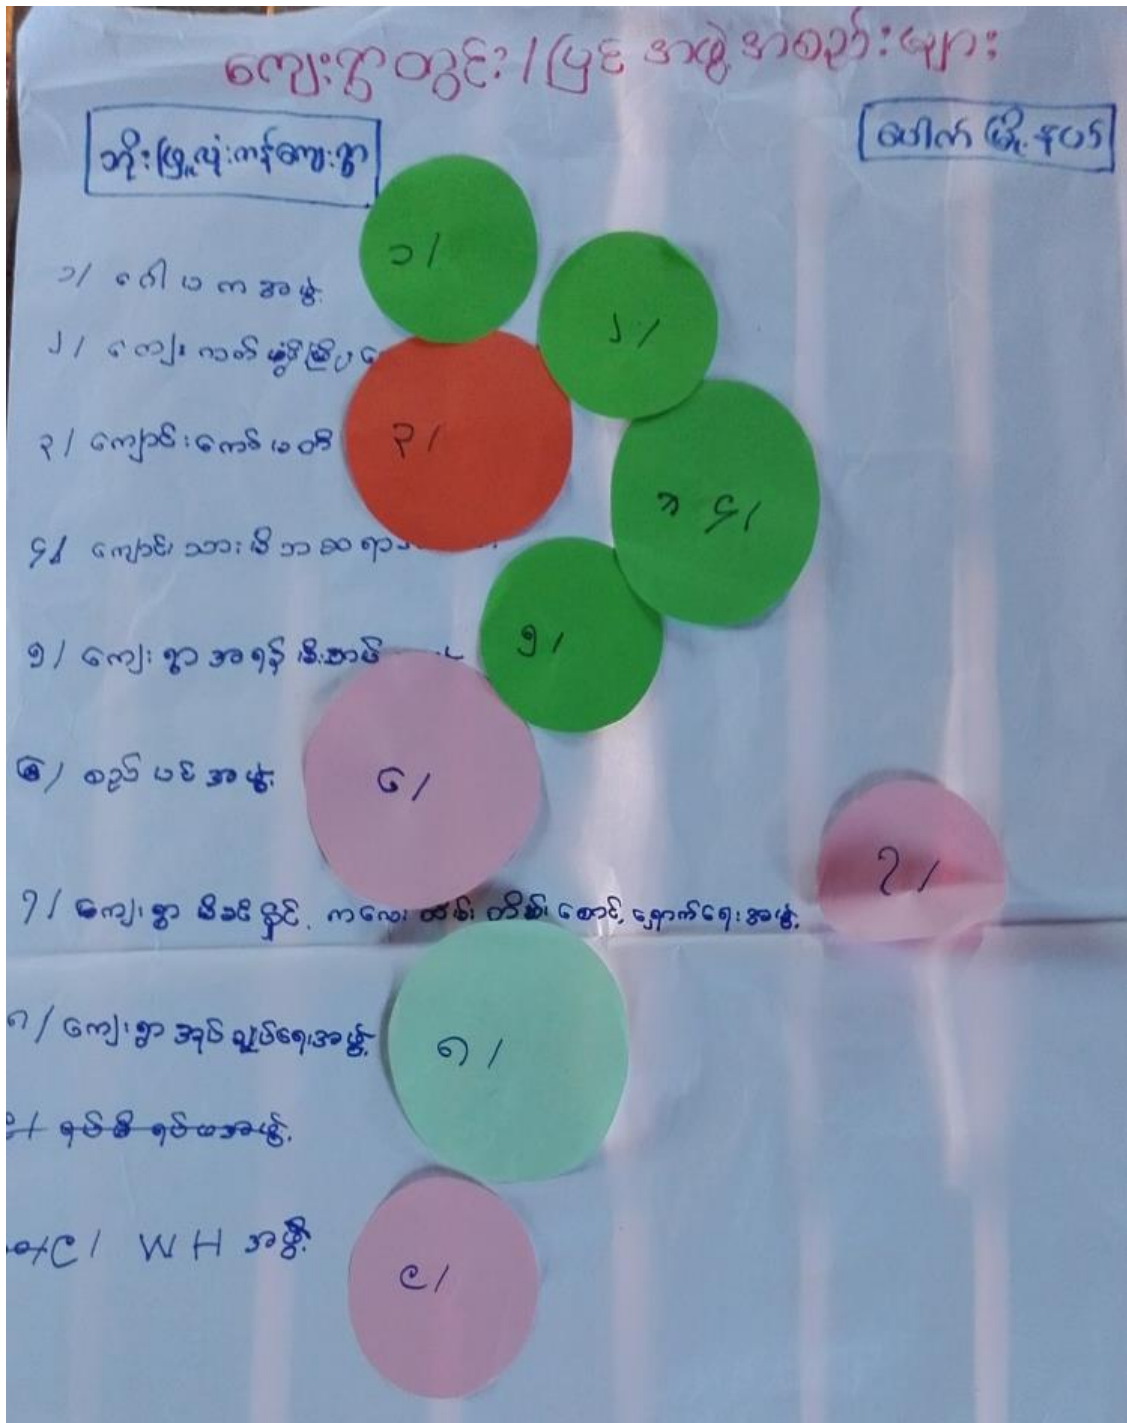 ကျေးရွာတွင်း/ပြင် အဖွဲ့အစည်းများ
ဘိုးဖြူလုံးကန်ကျေးရွာ
ပေါက်မြို့နယ်
၁/ ဂေါပကအဖွဲ့
၁/
၂/
၃/ ကျောင်းကော်မတီ
၃/
၄/ ကျောင်းသားမိဘဆရာ
၄/
၅/ ကျေးရွာအရန်မီးသတ်
၅/
၆/ စည်ပင်အဖွဲ့
၆/
၇/
၇/ ကျေးရွာမိခင်နှင့် ကလေးထိန်းသိမ်းစောင့်ရှောက်ရေးအဖွဲ့
၈/ ကျေးရွာအုပ်ချုပ်ရေးအဖွဲ့
၈/
ရပ်မိရပ်ဖအဖွဲ့
၉/ WHအဖွဲ့
၉/